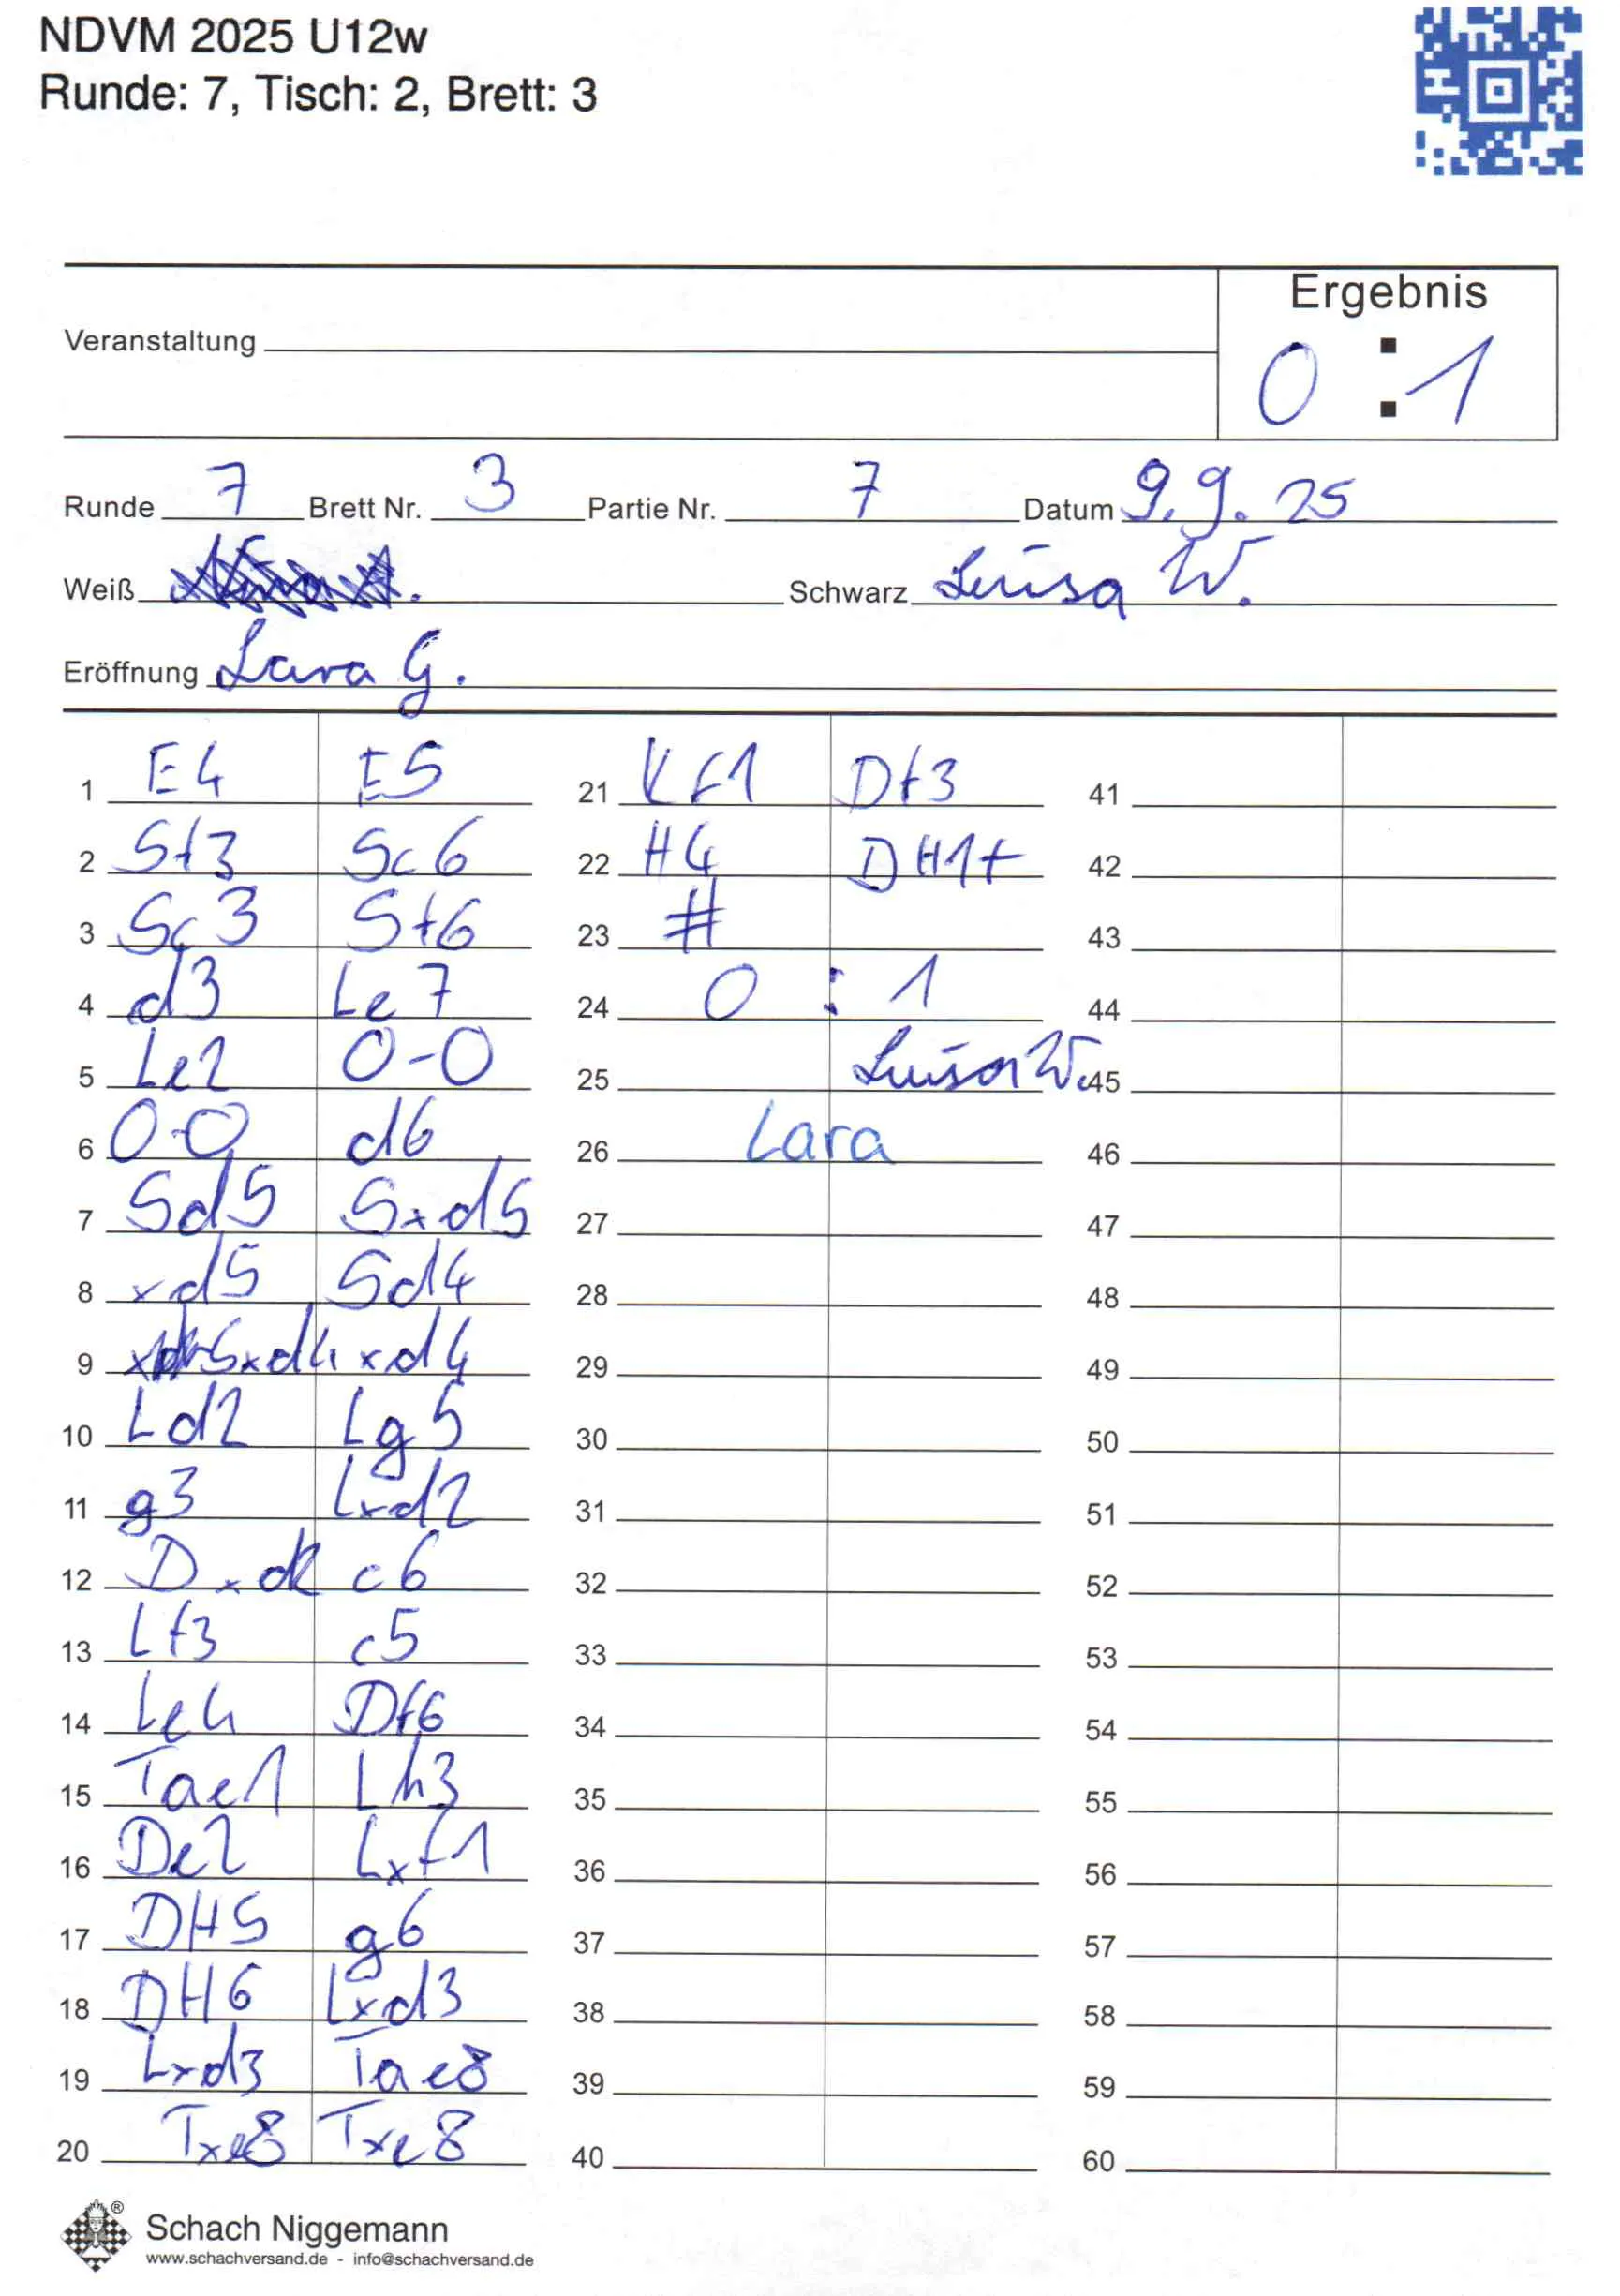 NDVM 2025 U12w
Runde: 7, Tisch: 2, Brett: 3
Ergebnis
Veranstaltung
0 : 1
Runde 7 Brett Nr. 3 Partie Nr. 7 Datum 9.9.25
Weiß Schwarz Luisa W.
Eröffnung Lara G.
1 E4 E5 21 Kf1 Df3 41
2 Sf3 Sc6 22 H4 DH1+ 42
3 Sc3 Sf6 23 # 43
4 d3 Le7 24 0 : 1 44
5 Le2 0-0 25 Luisa W. 45
6 0-0 d6 26 Lara 46
7 Sd5 Sxd5 27 47
8 xd5 Sd4 28 48
9 Sxd4 xd4 29 49
10 Ld2 Lg5 30 50
11 g3 Lxd2 31 51
12 Dxd2 c6 32 52
13 Lf3 c5 33 53
14 Le4 Df6 34 54
15 Tae1 Lh3 35 55
16 De2 Lxf1 36 56
17 DH5 g6 37 57
18 DH6 Lxd3 38 58
19 Lxd3 Tae8 39 59
20 Txe8 Txe8 40 60
Schach Niggemann
www.schachversand.de - info@schachversand.de